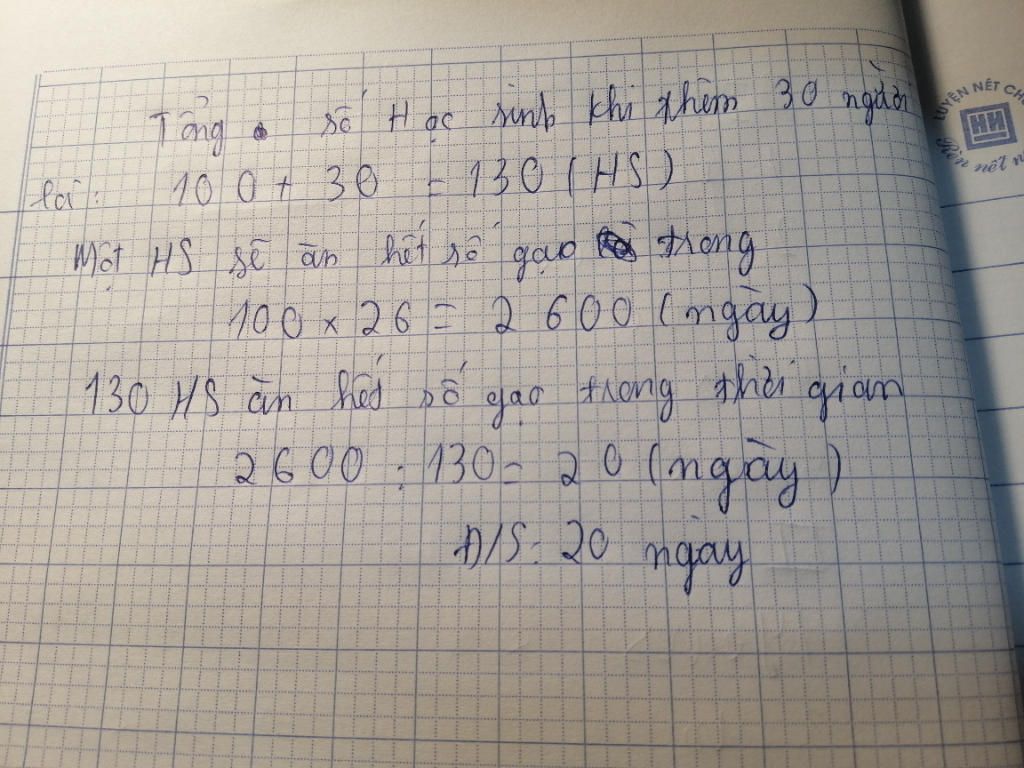 Tổng số Học sinh khi thêm 30 người
là: 100 + 30 = 130 (HS)
Một HS sẽ ăn hết số gạo trong
100 x 26 = 2 600 (ngày)
130 HS ăn hết số gạo trong thời gian
2600 : 130 = 20 (ngày)
Đ/S: 20 ngày
LUYỆN NÉT CH
HN
nét n